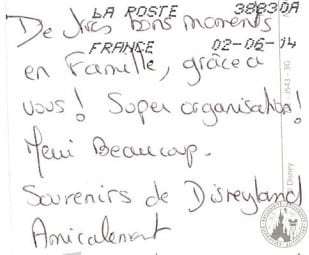 LA POSTE 38830A
De très bons moments
FRANCE 02-06-14
en Famille, grâce à
vous! Super organisation!
Merci Beaucoup.
Souvenirs de Disneyland
Amicalement
Disney